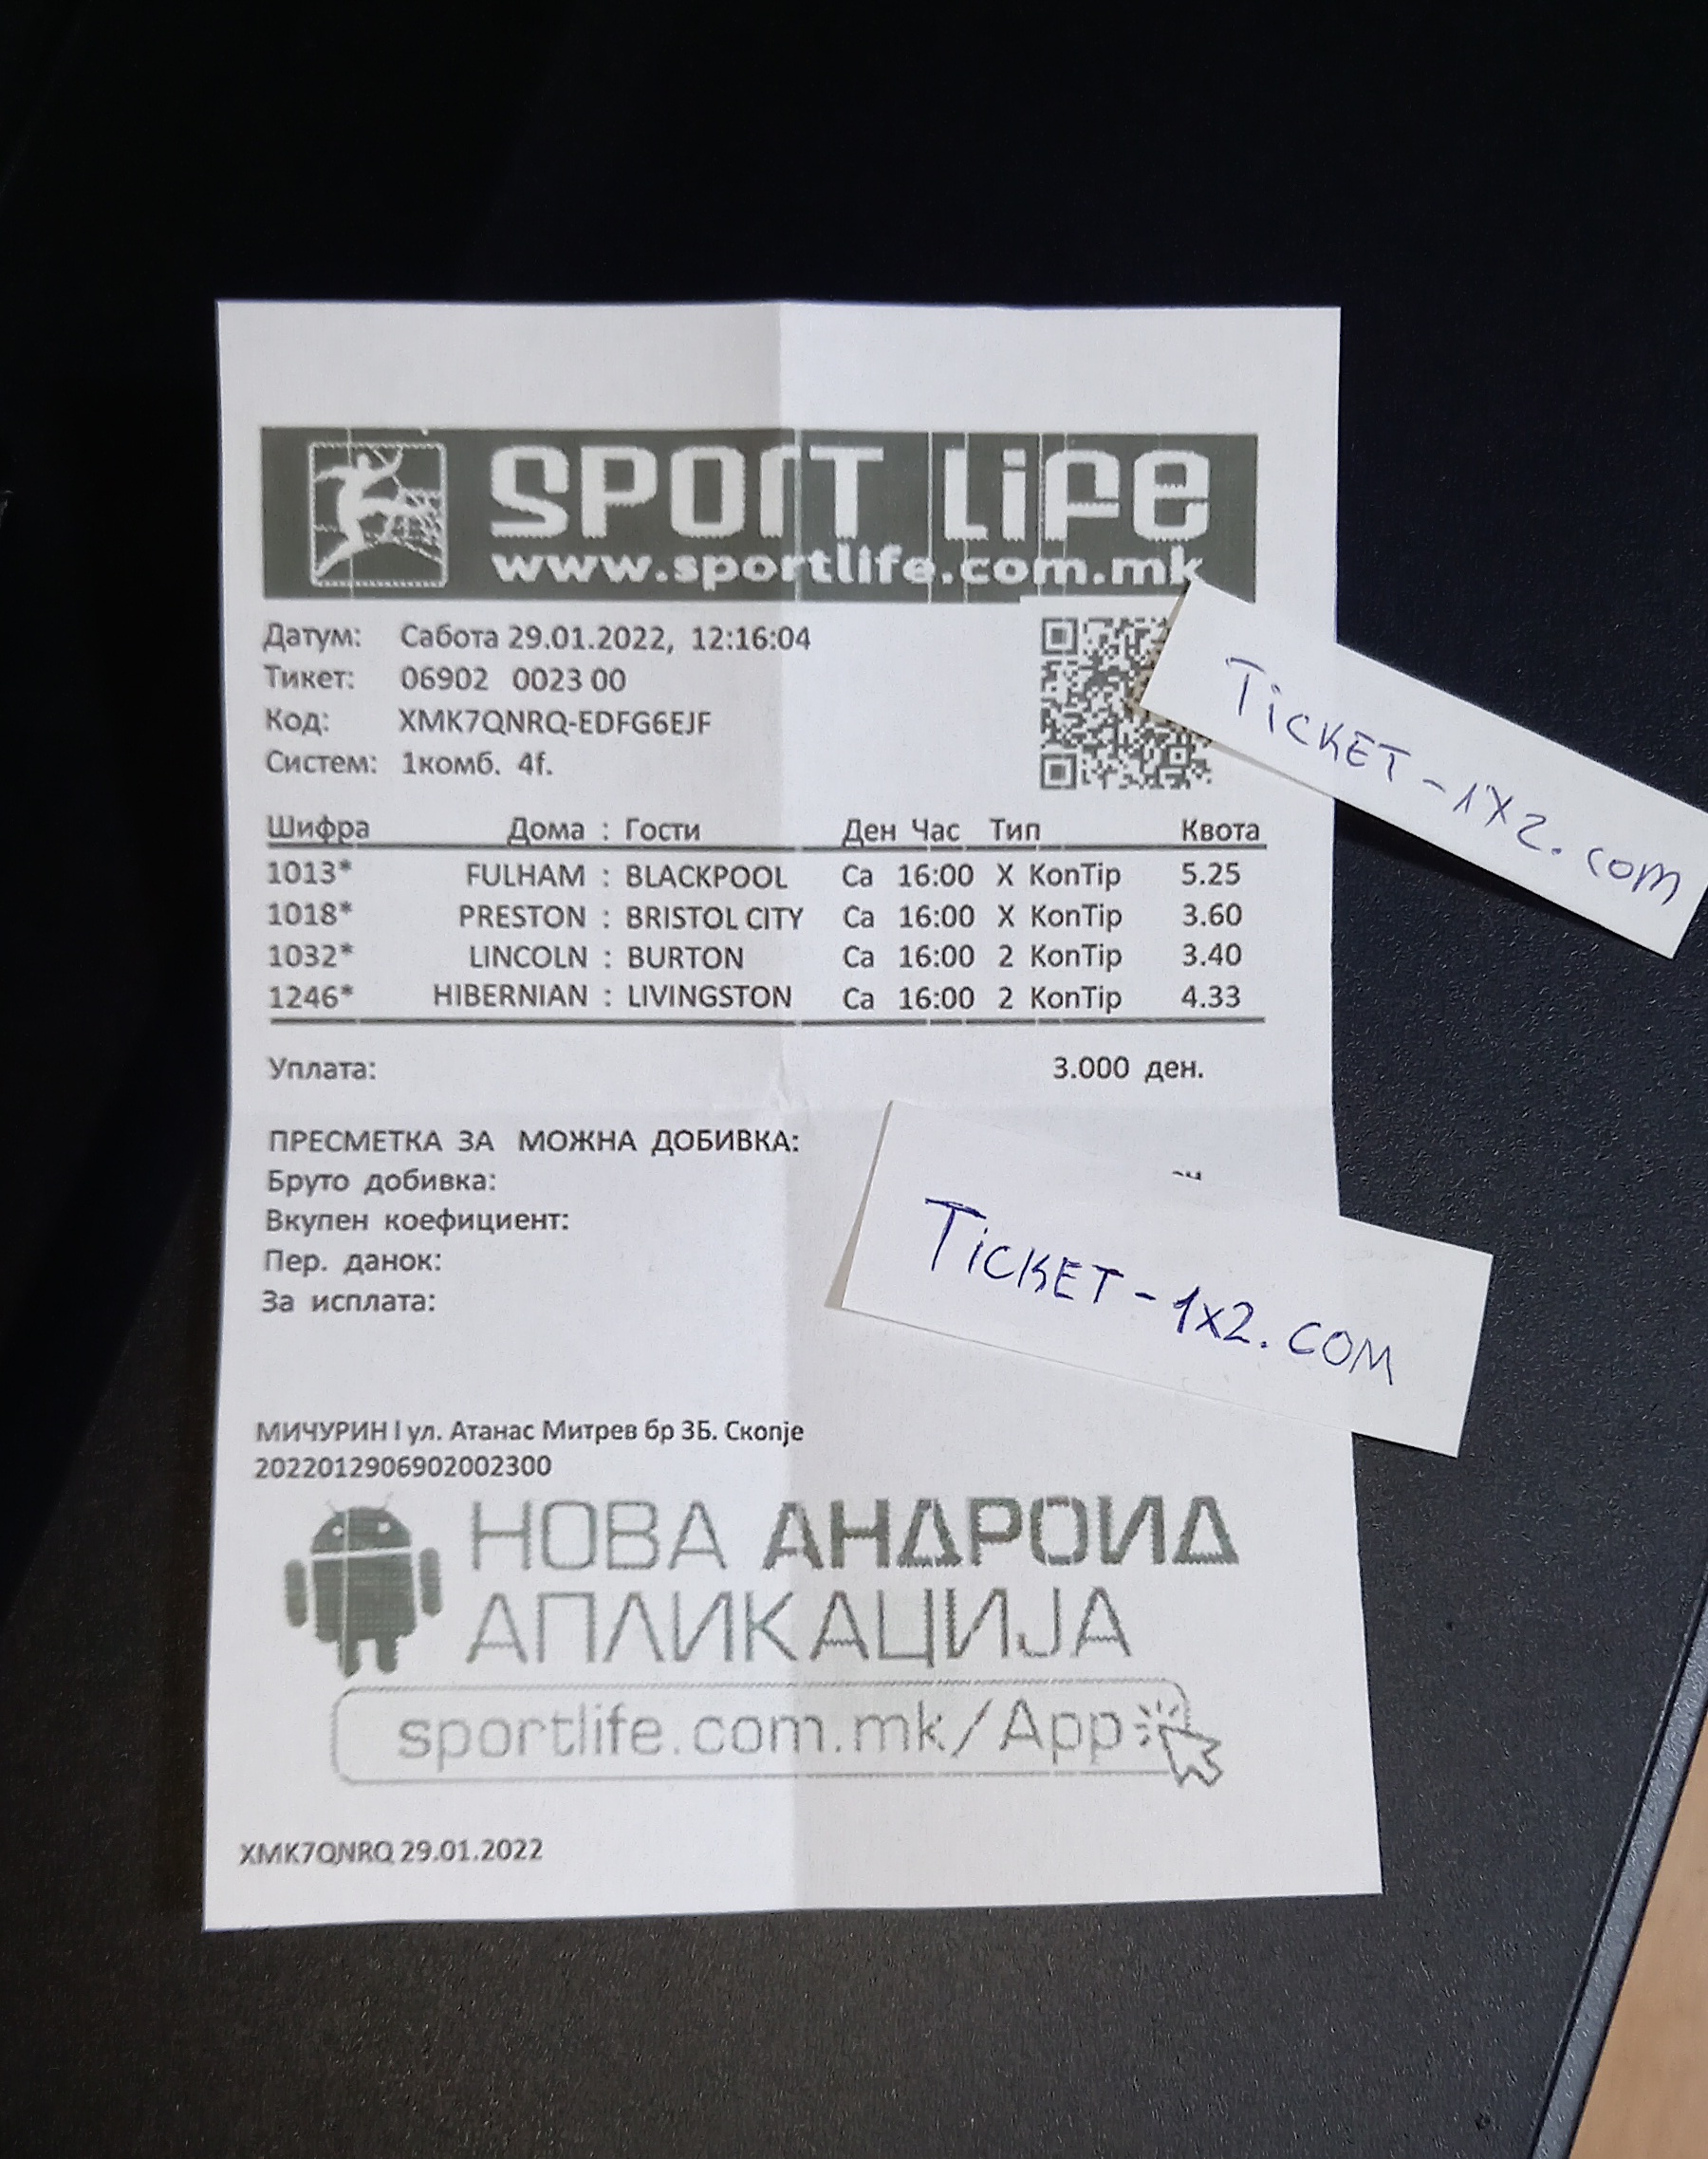 SPORT LIFE
www.sportlife.com.mk
Датум: Сабота 29.01.2022, 12:16:04
Тикет: 06902 0023 00
Код: XMK7QNRQ-EDFG6EJF
Систем: 1комб. 4f.
TICKET-1X2.COM
Шифра Дома : Гости Ден Час Тип Квота
1013* FULHAM : BLACKPOOL Са 16:00 X KonTip 5.25
1018* PRESTON : BRISTOL CITY Са 16:00 X KonTip 3.60
1032* LINCOLN : BURTON Са 16:00 2 KonTip 3.40
1246* HIBERNIAN : LIVINGSTON Са 16:00 2 KonTip 4.33
Уплата: 3.000 ден.
ПРЕСМЕТКА ЗА МОЖНА ДОБИВКА:
Бруто добивка:
Вкупен коефициент:
Пер. данок:
За исплата:
TICKET-1X2.COM
МИЧУРИН I ул. Атанас Митрев бр 3Б. Скопје
2022012906902002300
НОВА АНДРОИД
АПЛИКАЦИЈА
sportlife.com.mk/App
XMK7QNRQ 29.01.2022